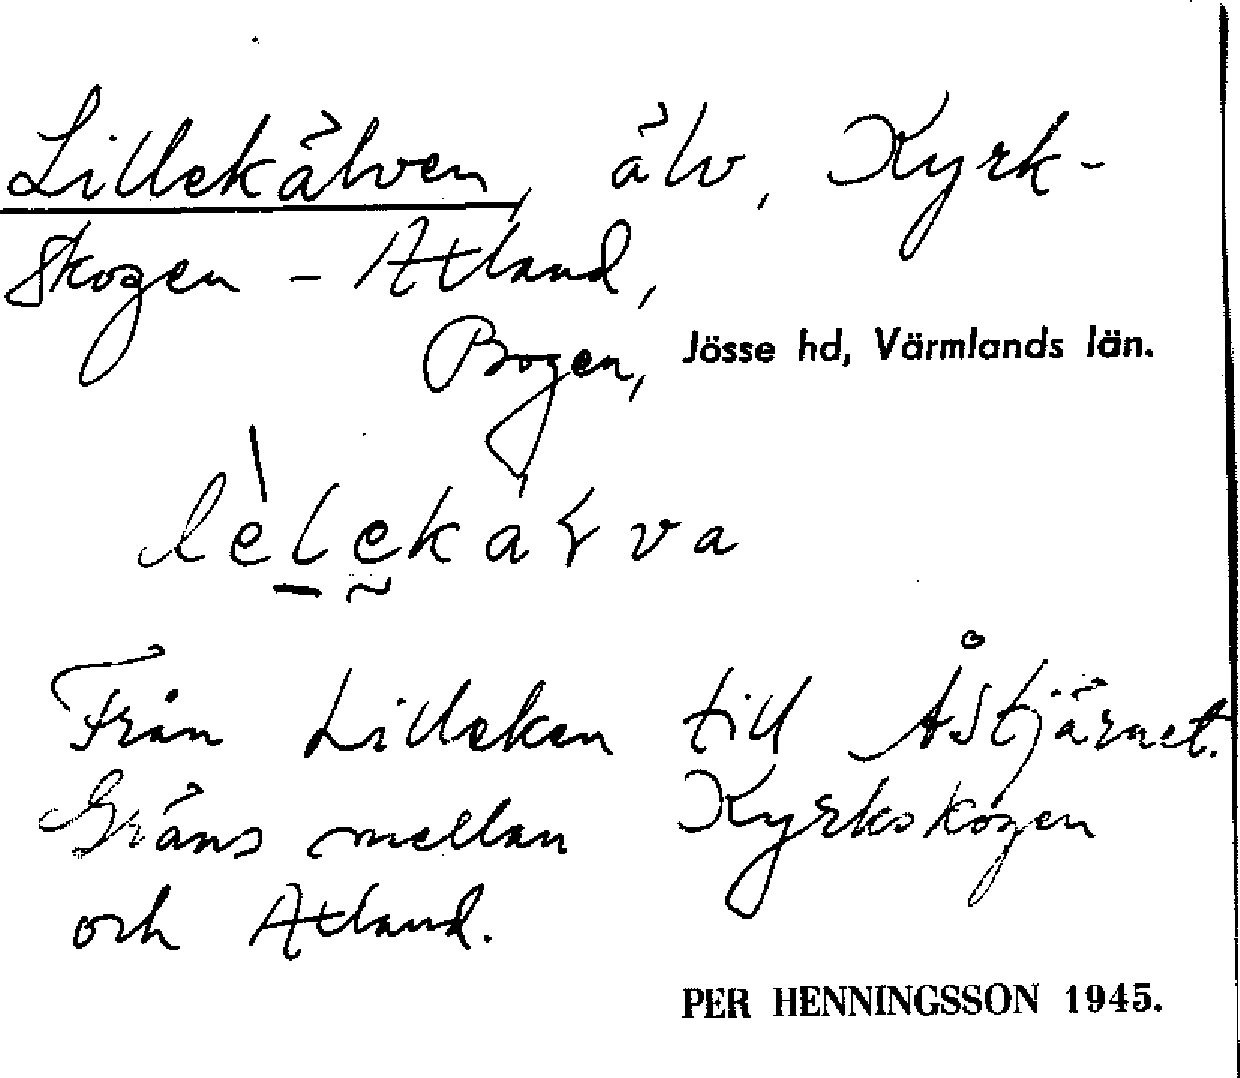 Lillekälven, älv, Kyrk-
skogen - Atland,
Bogen, Jösse hd, Värmlands län.
Från Lilleken till Åstjärnet.
Gräns mellan Kyrkskogen
och Atland.
PER HENNINGSSON 1945.